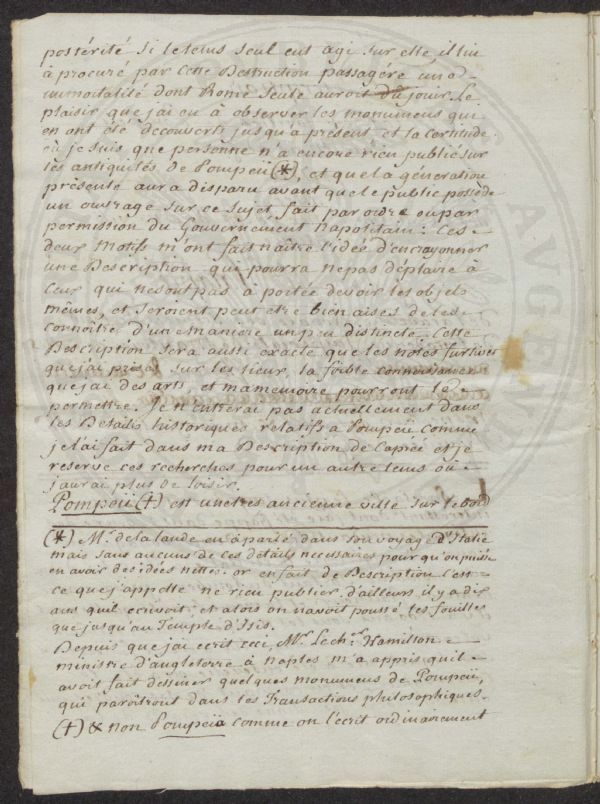 postérité si le tems seul eut agi sur elle, il lui
à procuré par cette Destruction passagére une
immortalité dont Rome seule auroit dû jouir. Le
plaisir que j'ai eu à observer les monumens qui
en ont été découverts jusqu'a présent et la certitude
où je suis que personne n'a encore rien publié sur
les antiquités de Pompeii (*), et que la géneration
présente aura disparu avant que le public possède
un ouvrage sur ce sujet, fait par ordre ou par
permission du Gouvernement Napolitain: Ces
deux Motifs m'ont fait naître l'idée d'encrayonner
une Description qui pourra ne pas déplaire à
Ceux qui ne sont pas à portée de voir les objets
mêmes, et seroient peut etre bien aises de les
connoître d'une maniere un peu distincte. Cette
Description sera aussi exacte que les notes furtives
que j'ai prises sur les lieux, la foible connoissance
que j'ai des arts, et ma memoire pourront le
permettre. Je n'entrerai pas actuellement dans
les Details historiques relatifs a Pompeii comme
je l'ai fait dans ma Description de Caprée et je
reserve ces recherches pour un autre tems où
j'aurai plus de loisir.
Pompeii (+) est une tres ancienne ville sur le bord
(*) Mr. de la lande en à parlé dans son voyage d'Italie
mais sans aucuns de ces details necessaires pour qu'on puisse
en avoir des idées nettes. or en fait de Description c'est
ce que j'appelle ne rien publier. d'ailleurs il y a dix
ans quil ecrivoit et alors on n'avoit poussé les fouilles
que jusqu'au Temple d'Isis.
Depuis que j'ai ecrit ceci, Mr. le cher. Hamilton
ministre d'angleterre à naples m'a appris qu'il
avoit fait dessiner quelques monumens de Pompeii,
qui paroîtront dans les Transactions philosophiques.
(+) & non Pompeïa comme on l'écrit ordinairement